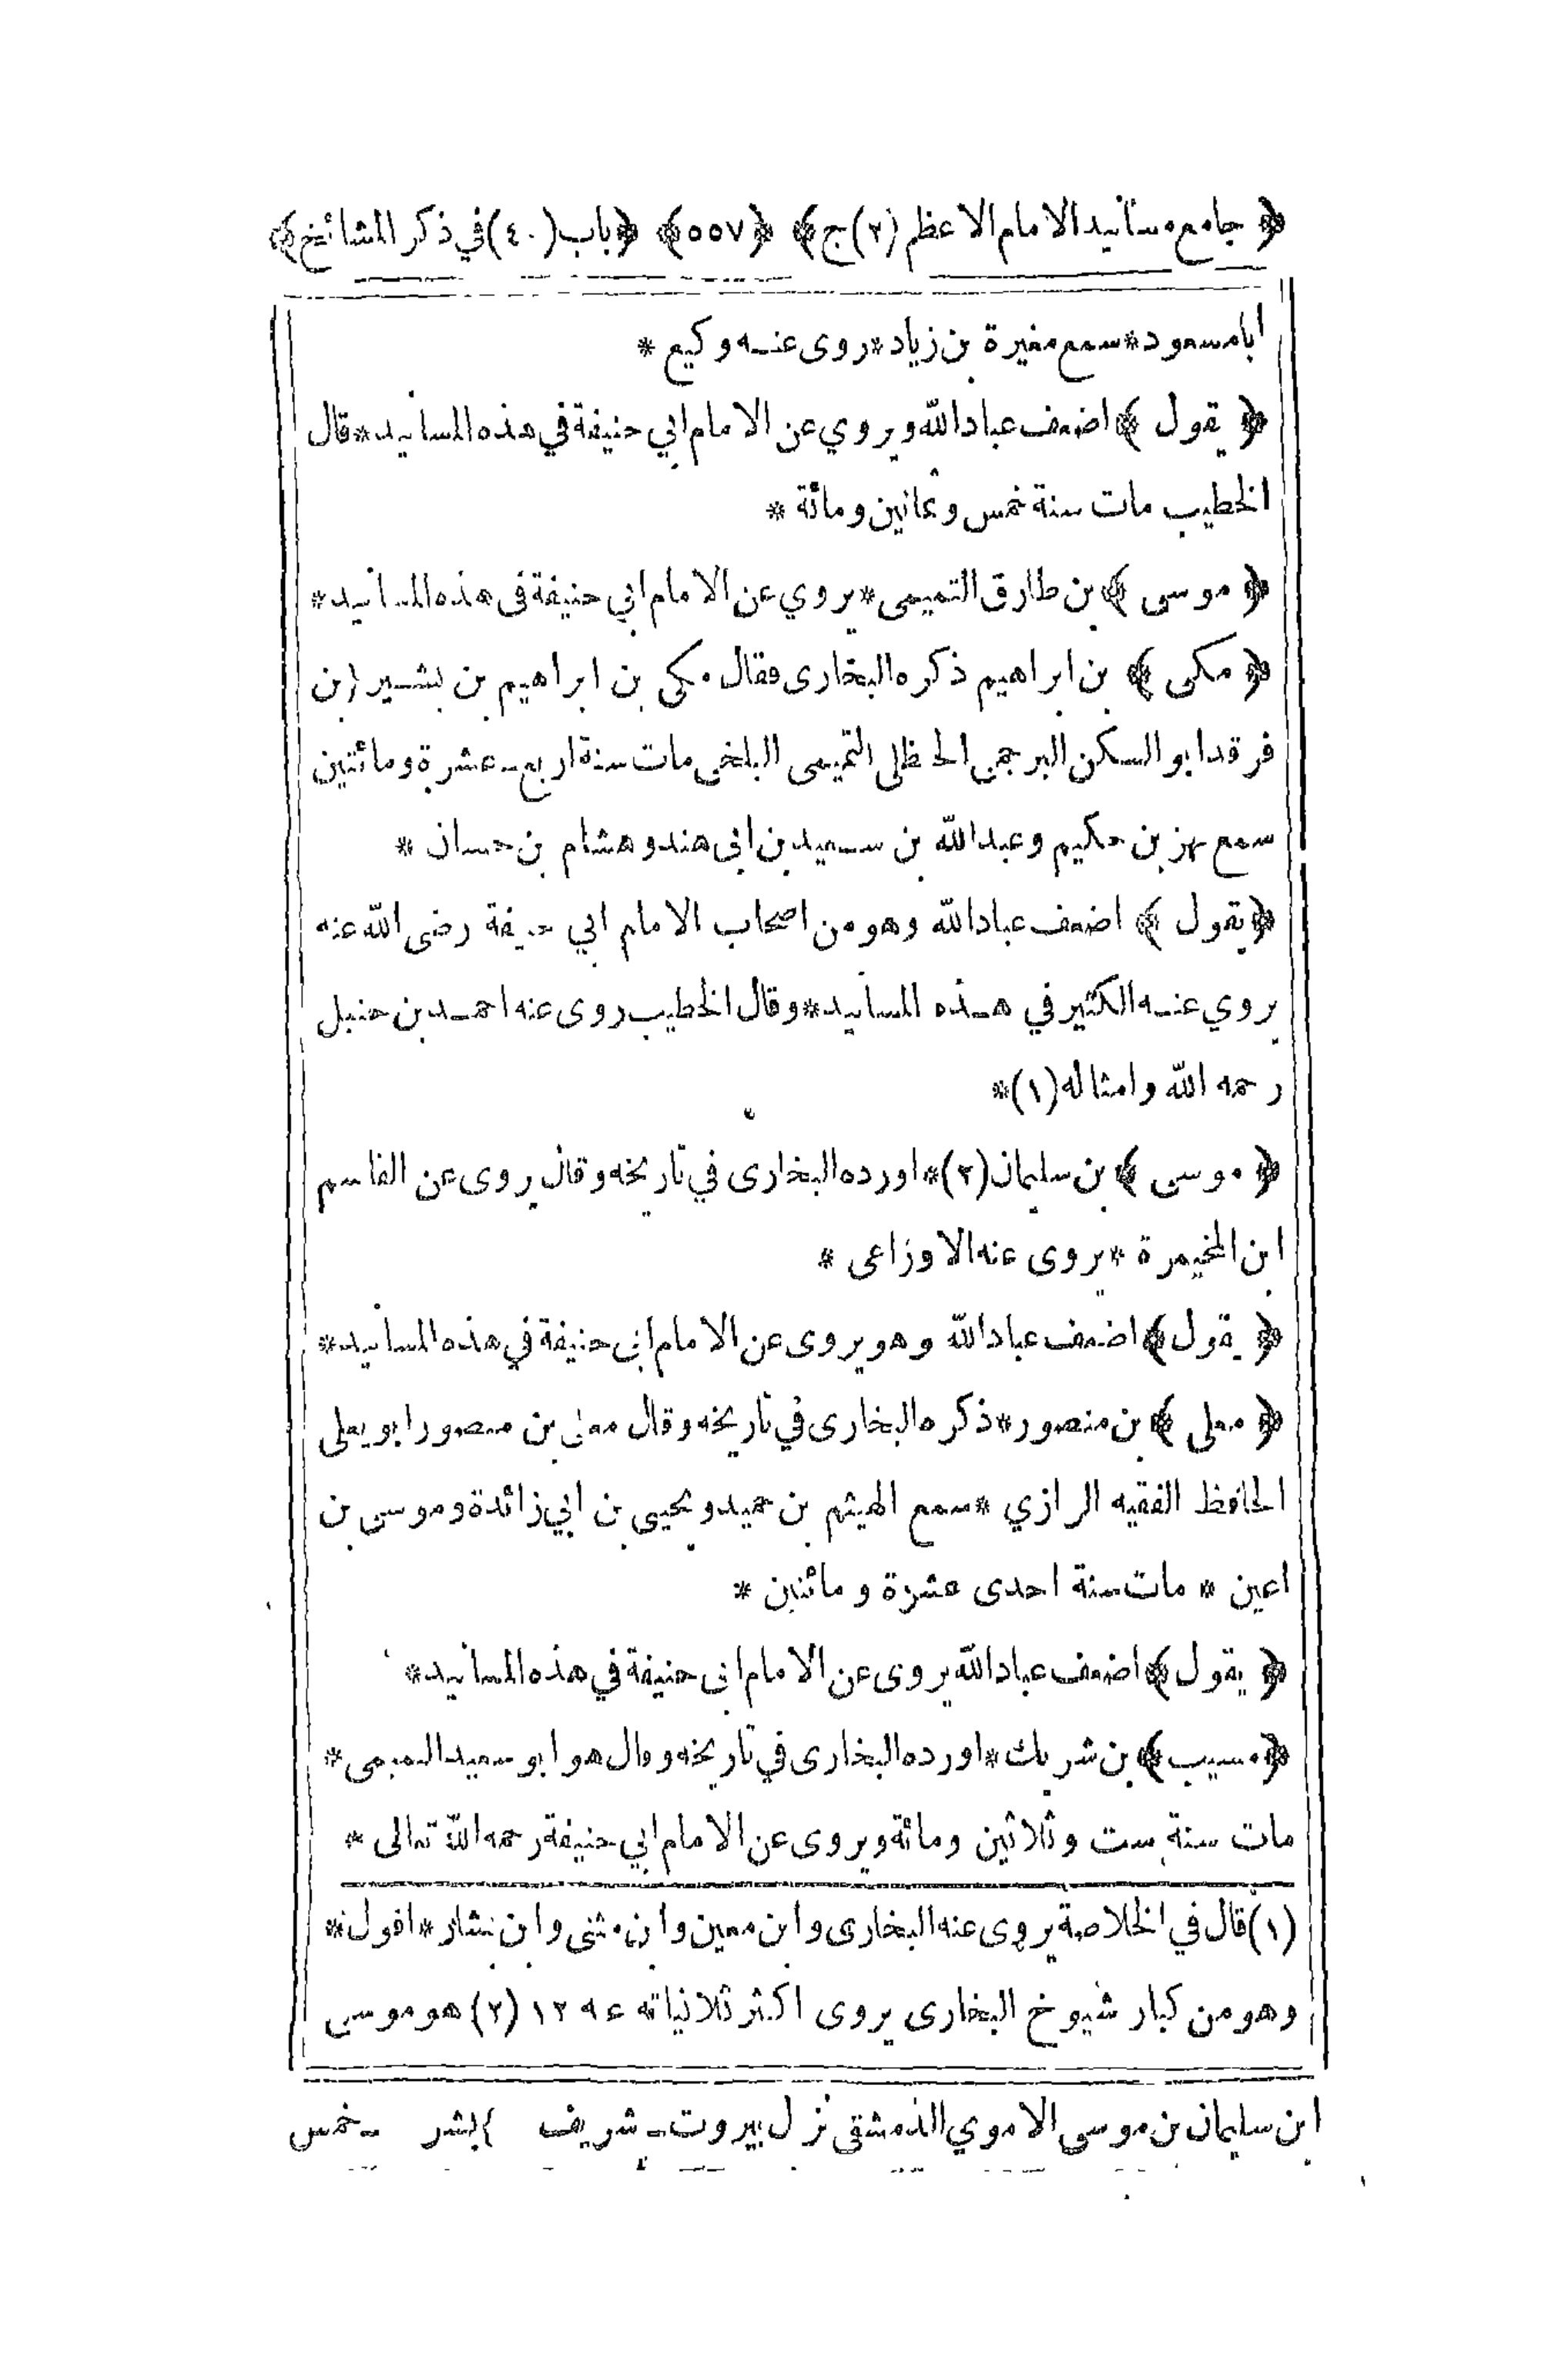 ﴿ جامع مسانيد الامام الاعظم (٢) ج ﴾ ﴿ ٥٥٧ ﴾ ﴿ باب (٤٠) في ذكر المشائخ ﴾
ابا مسعود * سمع مغيرة بن زياد * روى عنه وكيع *
﴿ يقول ﴾ اضعف عباد الله ويروي عن الامام ابي حنيفة في هذه المسانيد * قال
الخطيب مات سنة خمس وثمانين ومائة *
﴿ موسى ﴾ بن طارق التميمى * يروي عن الامام ابي حنيفة فى هذه المسانيد *
﴿ مكى ﴾ بن ابراهيم ذكره البخارى فقال مكى بن ابراهيم بن بشير ابن
فرقد ابو السكن البرجمى الحظلى التميمى البلخى مات سنة اربع عشرة ومائتين
سمع بهز بن حكيم وعبد الله بن سعيد بن ابى هند وهشام بن حسان *
﴿ يقول ﴾ اضعف عباد الله وهو من اصحاب الامام ابي حنيفة رضى الله عنه
يروي عنه الكثير في هذه المسانيد * وقال الخطيب روى عنه احمد بن حنبل
رحمه الله وامثاله (١) *
﴿ موسى ﴾ بن سليمان (٢) * اورده البخارى في تاريخه وقال يروى عن القاسم
ابن المخيمرة * يروى عنه الاوزاعى *
﴿ يقول ﴾ اضعف عباد الله وهو يروى عن الامام ابى حنيفة في هذه المسانيد *
﴿ معلى ﴾ بن منصور * ذكره البخارى في تاريخه وقال معلى بن منصور ابو يعلى
الحافظ الفقيه الرازي * سمع الهيثم بن حميد ويحيى بن ابي زائدة وموسى بن
اعين * مات سنة احدى عشرة ومائتين *
﴿ يقول ﴾ اضعف عباد الله يروى عن الامام ابى حنيفة في هذه المسانيد *
﴿ مسيب ﴾ بن شريك * اورده البخارى في تاريخه وقال هو ابو سعيد التميمى *
مات سنة ست وثلاثين ومائة ويروى عن الامام ابي حنيفة رحمه الله تعالى *
(١) قال في الخلاصة يروى عنه البخارى وابن معين وابن مثنى وابن بشار * اقول *
وهو من كبار شيوخ البخارى يروى اكثر ثلاثياته عنه ١٢ (٢) هو موسى
ابن سليمان بن موسى الاموي الدمشقى نزل بيروت شريف